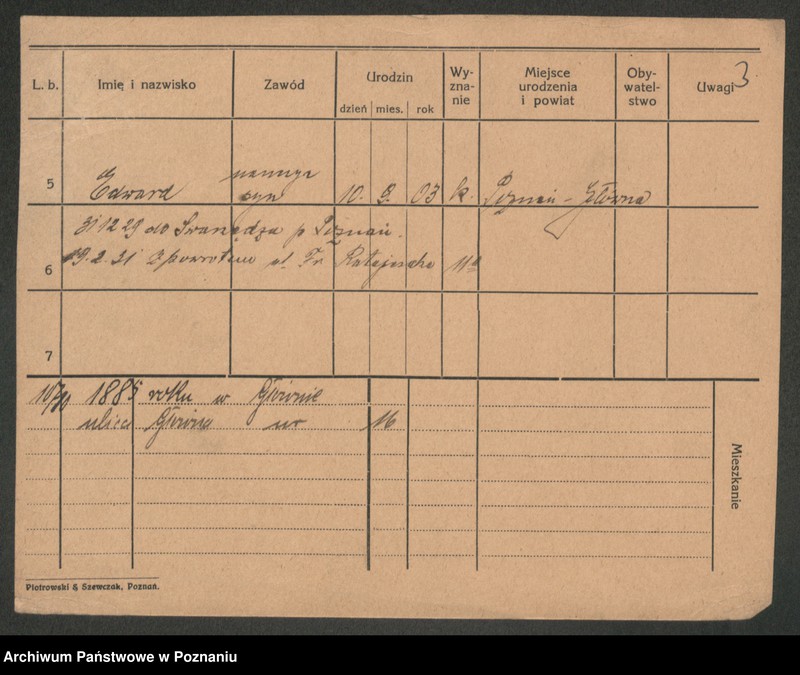 3
L. b. Imię i nazwisko Zawód Urodzin Wy-zna-nie Miejsce urodzenia i powiat Oby-watel-stwo Uwagi
dzień mies. rok
5 Edward syn 10. 9. 03 k. Poznań - Główna
31 12 29 do Swarzędza p Poznań.
6 19. 2. 31 z powrotem ul. Fr Ratajczaka 11a
7
10/10 1885 roku w Głównie
ulica Główna nr 16
Mieszkanie
Piotrowski & Szewczak, Poznań.
Archiwum Państwowe w Poznaniu